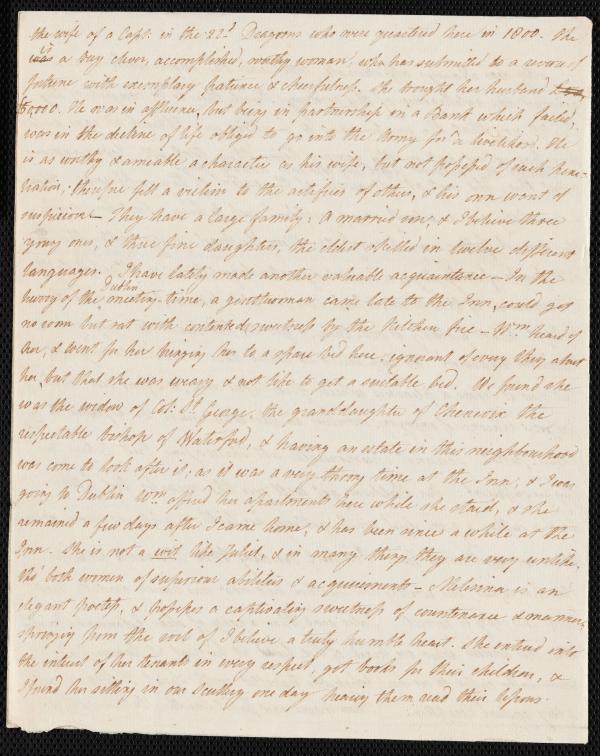 the wife of a Capt: in the 22d Dragoons who were quartered here in 1800. She
is a very clever, accomplished, worthy woman, who has submitted to a reverse of
fortune with exemplary patience & cheerfulness. She brought her husband
£50,000. He was in affluence, but being in partnership in a Bank which failed,
was in the decline of life obliged to go into the Army for a livelihood. He
is as worthy & amiable a character as his wife, but not possessed of such pene-
tration; therefore fell a victim to the artifices of others, & his own want of
suspicion — They have a large family: a married son, & I believe three
young ones, & three fine daughters, the eldest skilled in twelve different
languages. I have lately made another valuable acquaintance — In the
hurry of the Dublin meeting-time, a gentlewoman came late to the Inn, could get
no room but sat with contented sweetness by the kitchen fire — Wm heard of
her, & went for her bringing her to a spare bed here. ignorant of every thing about
her, but that she was weary & not like to get a suitable bed. We found she
was the widow of Col: St. George, the granddaughter of Chenevix the
respectable bishop of Waterford, & having an estate in this neighbourhood
was come to look after it; as it was a very throng time at the Inn, & I was
going to Dublin Wm offered her apartments here while she staid, & she
remained a few days after I came home, & has been since a while at the
Inn. She is not a wit like Juliet, & in many things they are very unlike,
tho' both women of superiour abilities & acquirements — Melesina is an
elegant poetess, & possesses a captivating sweetness of countenance & manners,
springing from the root of I believe a truly humble heart. She entered into
the interest of her tenants in every respect, got books for their children, &
I found her sitting in our Scullery one day hearing them read their lessons.